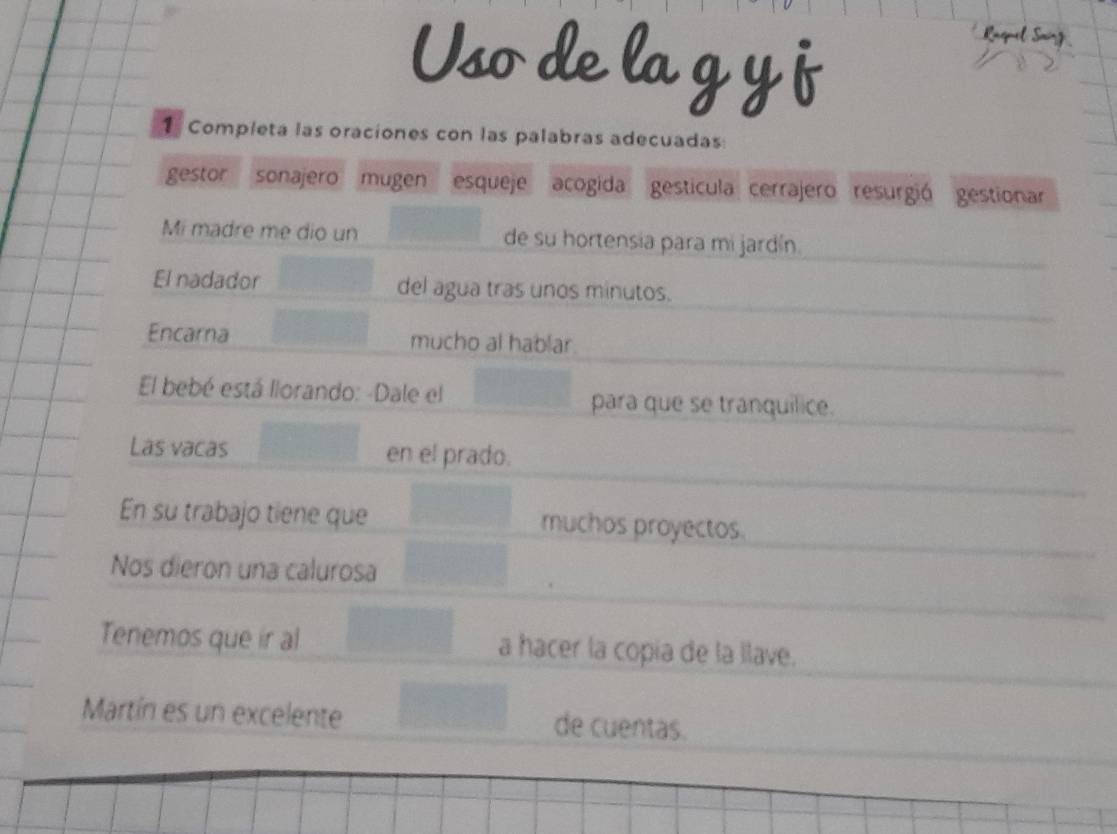 Uso de la g y j
Raquel Sang.
1 Completa las oraciones con las palabras adecuadas:
gestor sonajero mugen esqueje acogida gesticula cerrajero resurgió gestionar
Mi madre me dio un de su hortensia para mi jardín.
El nadador del agua tras unos minutos.
Encarna mucho al hablar.
El bebé está llorando: -Dale el para que se tranquilice.
Las vacas en el prado.
En su trabajo tiene que muchos proyectos.
Nos dieron una calurosa .
Tenemos que ir al a hacer la copia de la llave.
Martín es un excelente de cuentas.